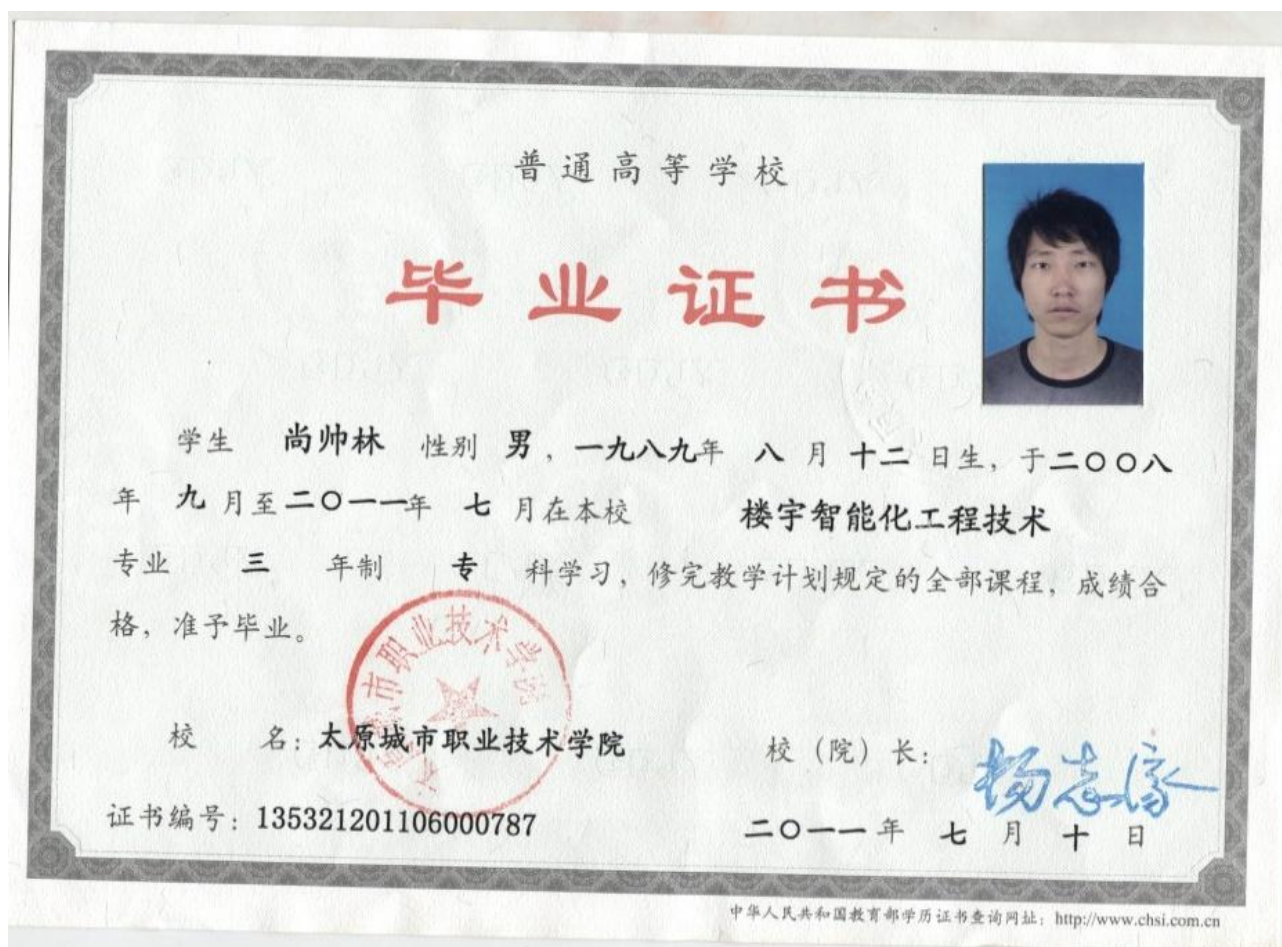 普通高等学校
毕业证书
学生 尚帅林 性别 男，一九八九年 八 月 十二 日生，于二〇〇八
年 九 月至二〇一一年 七 月在本校 楼宇智能化工程技术
专业 三 年制 专 科学习，修完教学计划规定的全部课程，成绩合
格，准予毕业。
校 名：太原城市职业技术学院
校（院）长：
证书编号：135321201106000787
二〇一一年 七 月 十 日
中华人民共和国教育部学历证书查询网址：http://www.chsi.com.cn